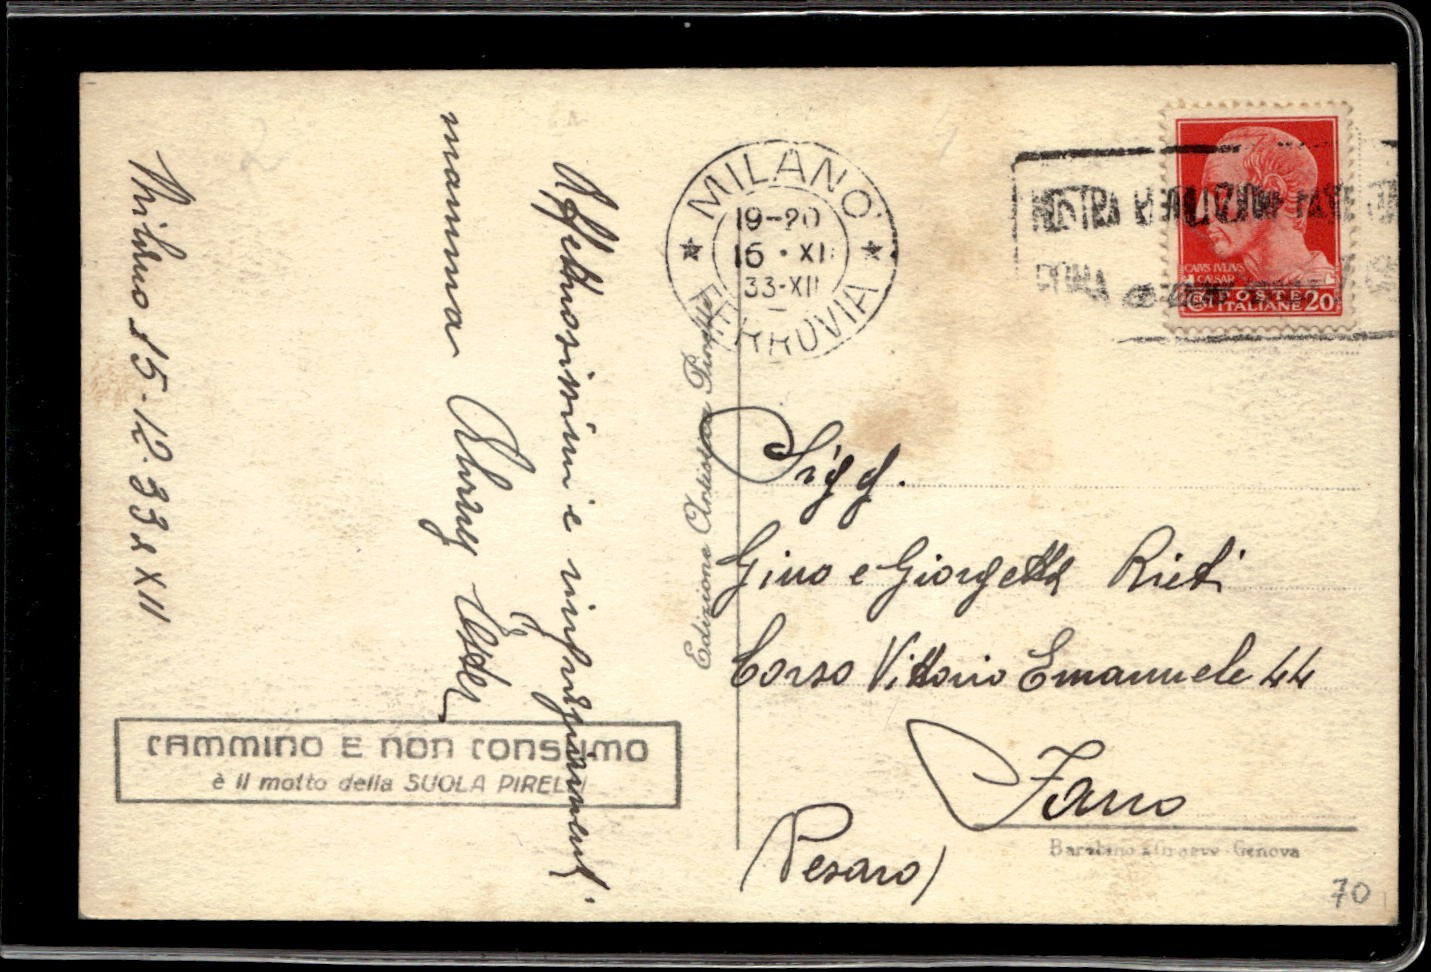 Milano 15-12.33 XII
Affettuosissimi e
mamma
Ester
CAMMINO E NON CONSUMO
è il motto della SUOLA PIRELLI
Edizione Artistica
MILANO
19-20
16 · XII
33-XII
FERROVIA
MOSTRA
ROMA
CAIVS IVLIVS
CAESAR
POSTE
ITALIANE 20
Sigg.
Gino e Giorgetta Rieti
Corso Vittorio Emanuele 44
Fano
(Pesaro)
Genova
70